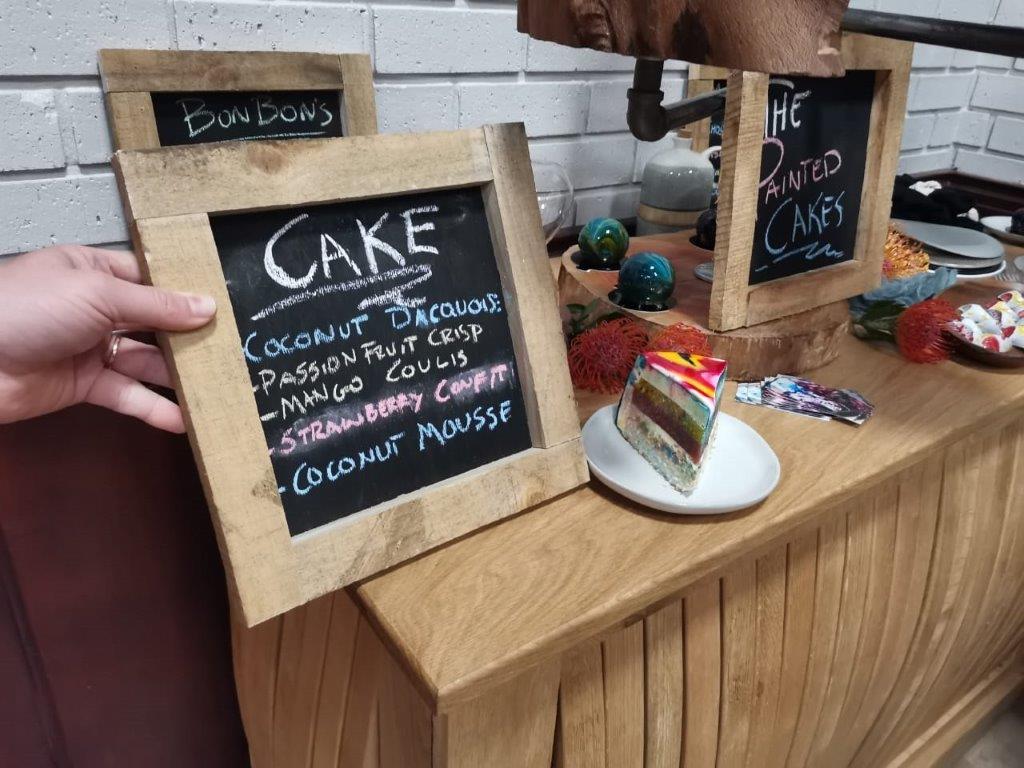 BONBON'S
CAKE
COCONUT DACQUOISE:
-PASSIONFRUIT CRISP
-MANGO COULIS
-STRAWBERRY CONFIT
-COCONUT MOUSSE
THE
PAINTED
CAKES